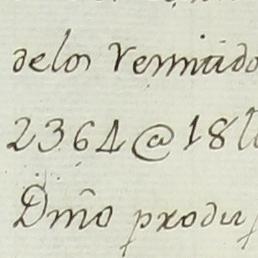 delos remitido
2364@18l
Dmõ produs